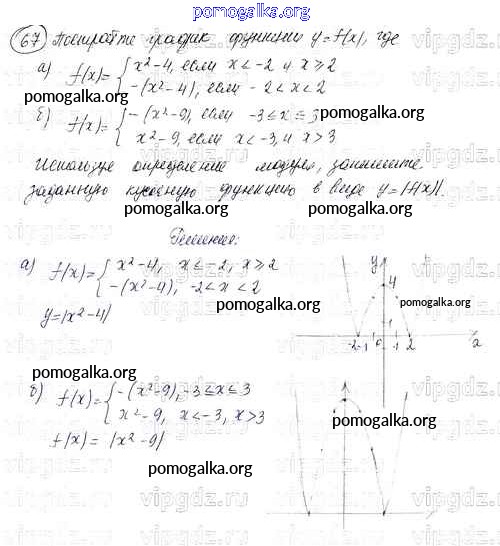 pomogalka.org
67 Постройте график функции y=f(x), где
а) f(x)={ x²-4, если x<-2 и x≥2
-(x²-4), если -2<x<2
pomogalka.org pomogalka.org
б) f(x)={ -(x²-9), если -3≤x≤3
x²-9, если x<-3, и x>3
pomogalka.org
Используя определение модуля, запишите
заданную кусочную функцию в виде y=|f(x)|.
pomogalka.org pomogalka.org
Решение:
а) f(x)={ x²-4, x≤-2, x≥2
-(x²-4), -2<x<2
pomogalka.org
y=|x²-4|
y
4
pomogalka.org
1
-2 -1 0 1 2 x
pomogalka.org
б) f(x)={ -(x²-9), -3≤x≤3
x²-9, x<-3, x>3
pomogalka.org
f(x)=|x²-9|
pomogalka.org
vipgdz.ru